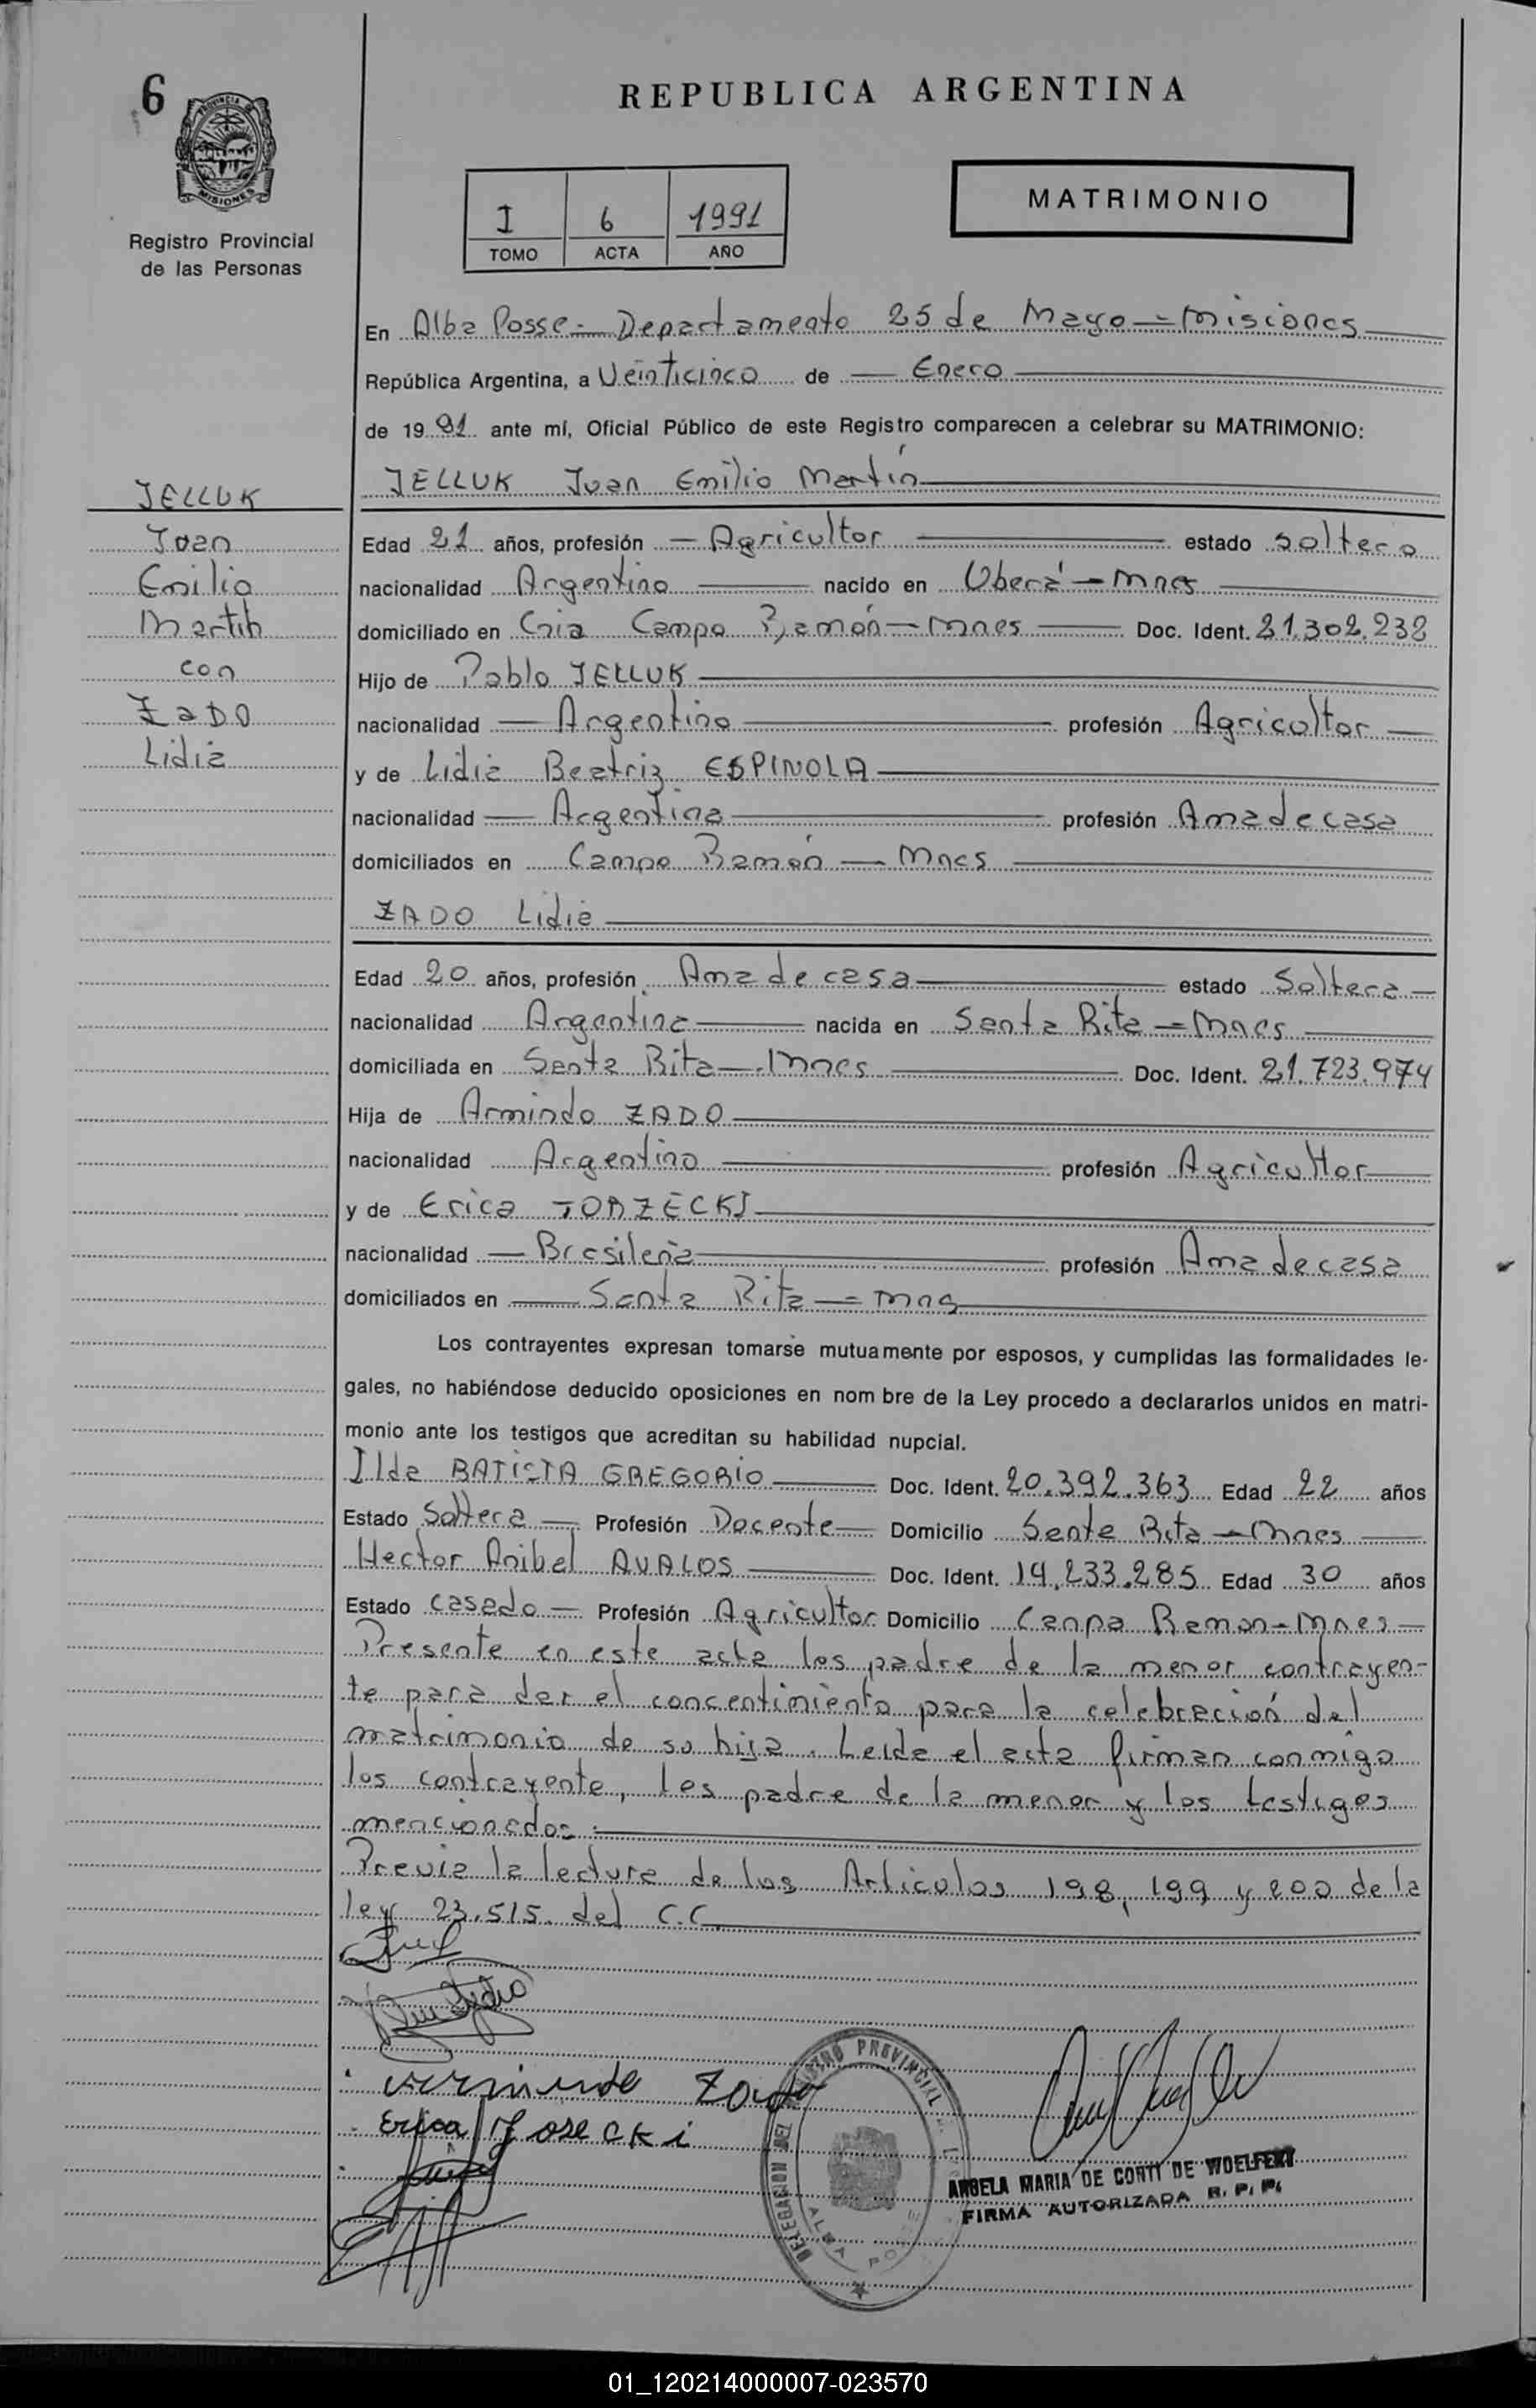 6
REPUBLICA ARGENTINA
PROVINCIA DE
MISIONES
Registro Provincial
de las Personas
I 6 1991
TOMO ACTA AÑO
MATRIMONIO
En Alba Posse - Departamento 25 de Mayo - Misiones
República Argentina, a Veinticinco de Enero
de 1991 ante mí, Oficial Público de este Registro comparecen a celebrar su MATRIMONIO:
JELLUK Juan Emilio Martín
JELLUK
Juan
Emilio
Martin
con
ZADO
Lidia
Edad 21 años, profesión - Agricultor estado soltero
nacionalidad Argentino nacido en Oberá - Mnes
domiciliado en Cnia Campo Ramón - Mnes Doc. Ident. 21.302.232
Hijo de Pablo JELLUK
nacionalidad Argentino profesión Agricultor
y de Lidia Beatriz ESPINOLA
nacionalidad Argentina profesión Ama de casa
domiciliados en Campo Ramón - Mnes
ZADO Lidia
Edad 20 años, profesión Ama de casa estado Soltera
nacionalidad Argentina nacida en Santa Rita - Mnes
domiciliada en Santa Rita - Mnes Doc. Ident. 21.723.974
Hija de Armindo ZADO
nacionalidad Argentino profesión Agricultor
y de Erica JORZECKI
nacionalidad Brasileña profesión Ama de casa
domiciliados en Santa Rita - Mns
Los contrayentes expresan tomarse mutuamente por esposos, y cumplidas las formalidades le-
gales, no habiéndose deducido oposiciones en nom bre de la Ley procedo a declararlos unidos en matri-
monio ante los testigos que acreditan su habilidad nupcial.
Ilda BATISTA GREGORIO Doc. Ident. 20.392.363 Edad 22 años
Estado Soltera Profesión Docente Domicilio Santa Rita - Mnes
Hector Anibal AVALOS Doc. Ident. 14.233.285 Edad 30 años
Estado casado Profesión Agricultor Domicilio Canpa Ramon - Mnes
Presente en este acta los padre de la menor contrayen-
te para dar el concentimiento para la celebración del
matrimonio de su hija. Leida el acta firman conmigo
los contrayente, los padre de la menor y los testigos
mencionados.
Previa la lectura de los Articulos 198, 199 y 200 de la
ley 23.515. del C.C.
Armindo Zado
Erica Josecki
DELEGACION DEL REGISTRO PROVINCIAL
ALBA POSSE
ANGELA MARIA DE CONTI DE WOELFERT
FIRMA AUTORIZADA R. P. P.
01_120214000007-023570